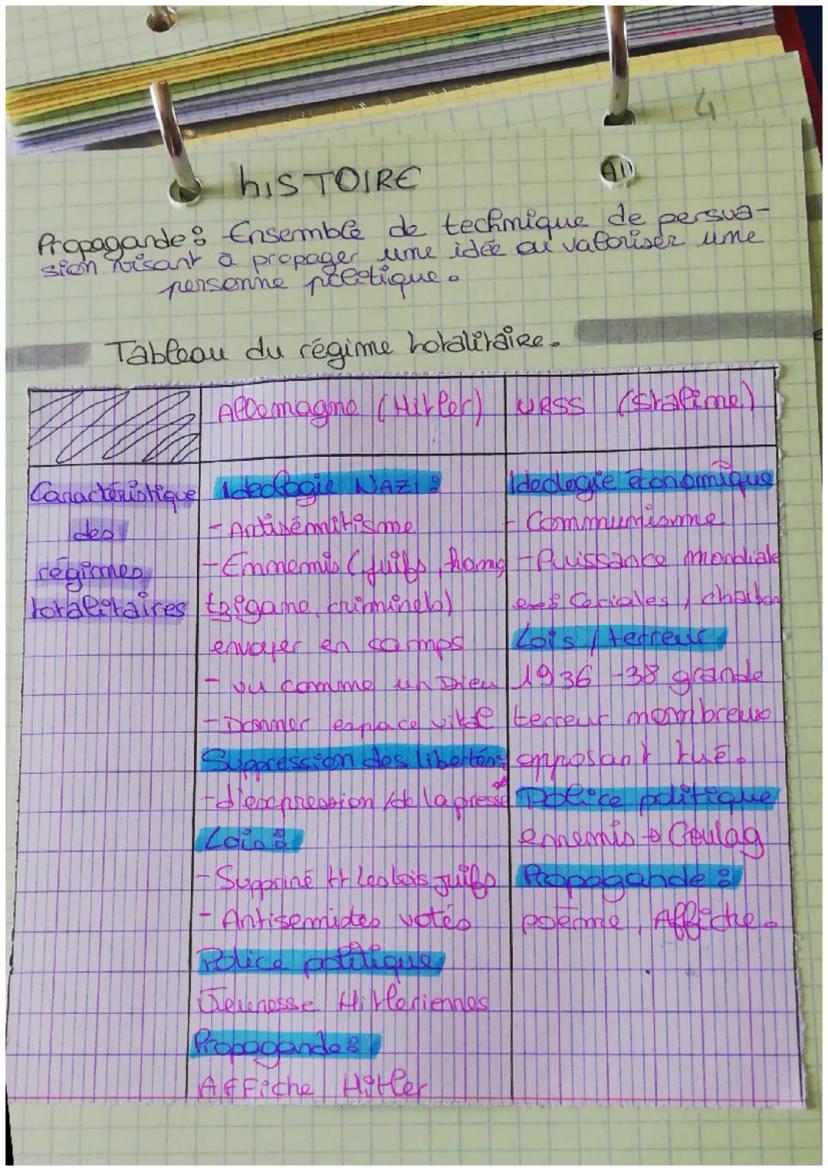 4
hISTOIRE
Propagande : Ensemble de technique de persua-
sion visant à propager une idée ou valoriser une
personne politique.
Tableau du régime totalitaire.
Allemagne (Hitler)
URSS (Staline)
Caractéristique
des
régimes
totalitaires
Ideologie NAZI :
- Antisémitisme
- Ennemis (juifs, homo
tzigane, criminels)
envoyer en camps
- vu comme un Dieu
- Donner espace vital
Suppression des libertés :
- d'expression / de la presse
Lois :
- Supprimé tt les lois juifs
- Antisemides votés
Police politique
Jeunesse Hitleriennes
Propagande :
Affiche Hitler
Ideologie économique
- Communisme
- Puissance mondiale
Ceriales, charbon
Lois / terreur
1936 - 38 grande
terreur nombreux
opposant tué.
Police politique
ennemis → Goulag
Propagande :
poème, Affiche.